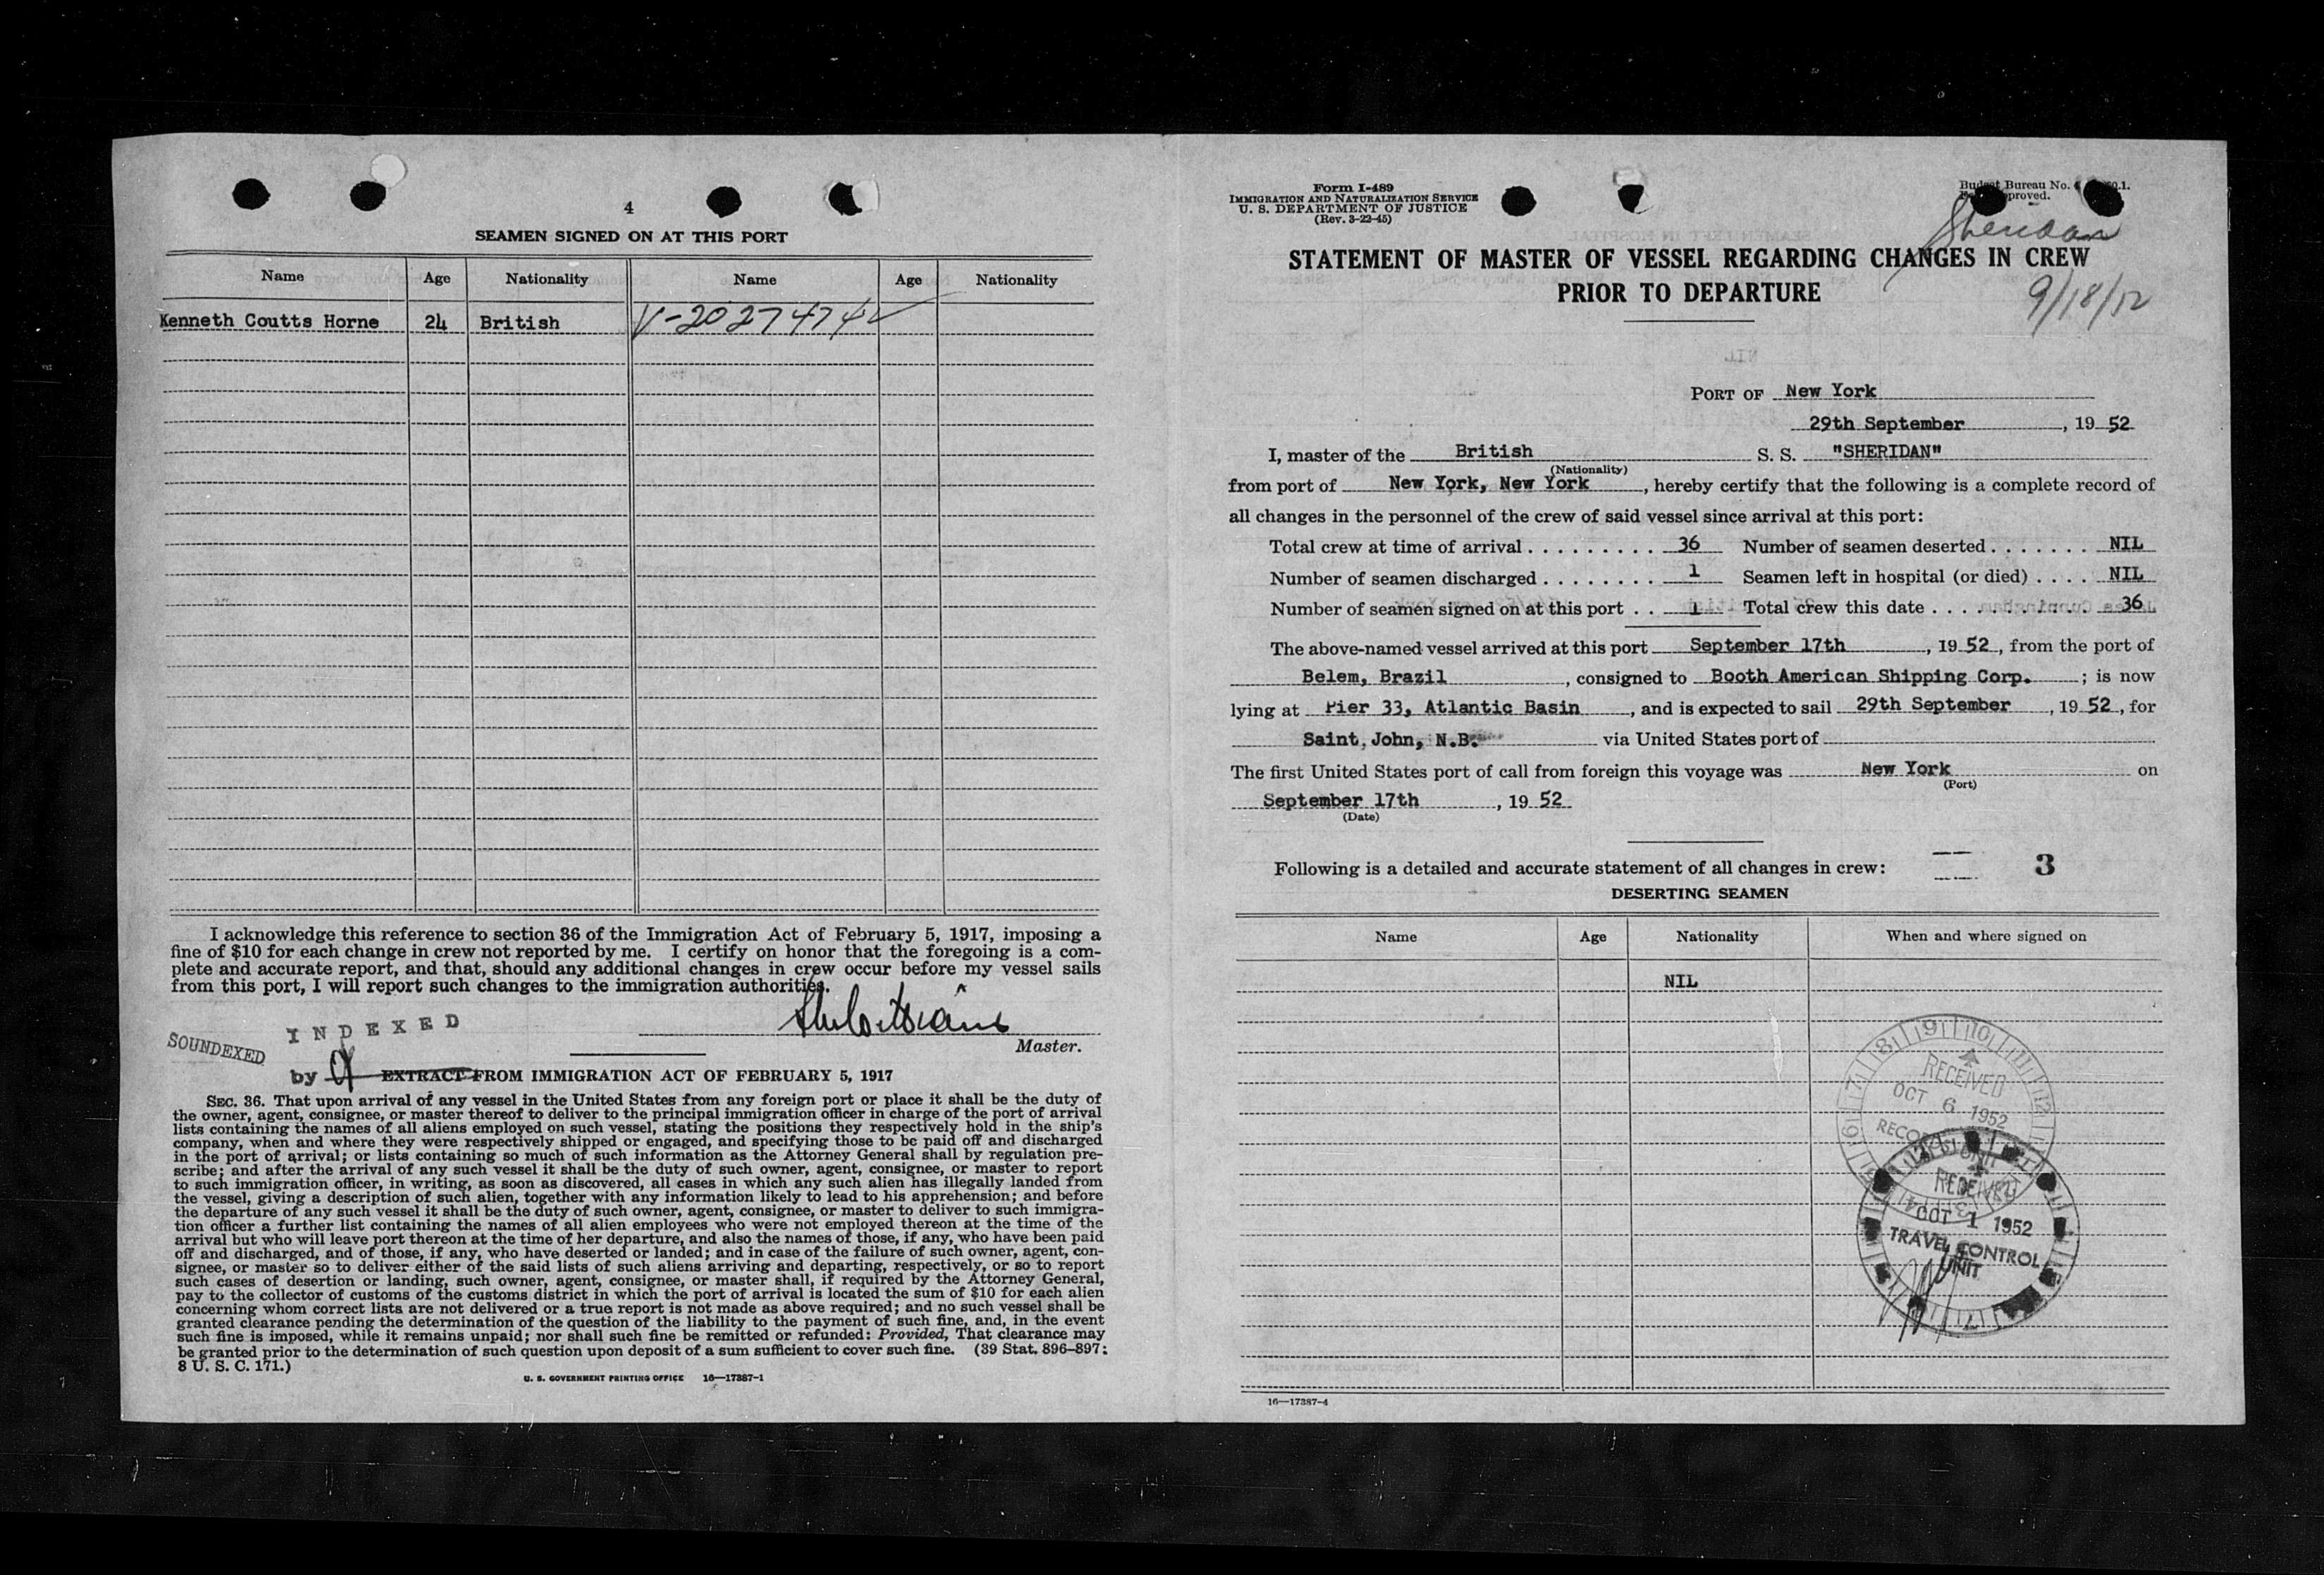 4
SEAMEN SIGNED ON AT THIS PORT
Name Age Nationality Name Age Nationality
Kenneth Coutts Horne 24 British V-20274742
I acknowledge this reference to section 36 of the Immigration Act of February 5, 1917, imposing a
fine of $10 for each change in crew not reported by me. I certify on honor that the foregoing is a com-
plete and accurate report, and that, should any additional changes in crew occur before my vessel sails
from this port, I will report such changes to the immigration authorities.
INDEXED
SOUNDEXED
Master.
by
EXTRACT FROM IMMIGRATION ACT OF FEBRUARY 5, 1917
SEC. 36. That upon arrival of any vessel in the United States from any foreign port or place it shall be the duty of
the owner, agent, consignee, or master thereof to deliver to the principal immigration officer in charge of the port of arrival
lists containing the names of all aliens employed on such vessel, stating the positions they respectively hold in the ship's
company, when and where they were respectively shipped or engaged, and specifying those to be paid off and discharged
in the port of arrival; or lists containing so much of such information as the Attorney General shall by regulation pre-
scribe; and after the arrival of any such vessel it shall be the duty of such owner, agent, consignee, or master to report
to such immigration officer, in writing, as soon as discovered, all cases in which any such alien has illegally landed from
the vessel, giving a description of such alien, together with any information likely to lead to his apprehension; and before
the departure of any such vessel it shall be the duty of such owner, agent, consignee, or master to deliver to such immigra-
tion officer a further list containing the names of all alien employees who were not employed thereon at the time of the
arrival but who will leave port thereon at the time of her departure, and also the names of those, if any, who have been paid
off and discharged, and of those, if any, who have deserted or landed; and in case of the failure of such owner, agent, con-
signee, or master so to deliver either of the said lists of such aliens arriving and departing, respectively, or so to report
such cases of desertion or landing, such owner, agent, consignee, or master shall, if required by the Attorney General,
pay to the collector of customs of the customs district in which the port of arrival is located the sum of $10 for each alien
concerning whom correct lists are not delivered or a true report is not made as above required; and no such vessel shall be
granted clearance pending the determination of the question of the liability to the payment of such fine, and, in the event
such fine is imposed, while it remains unpaid; nor shall such fine be remitted or refunded: Provided, That clearance may
be granted prior to the determination of such question upon deposit of a sum sufficient to cover such fine. (39 Stat. 896–897;
8 U. S. C. 171.)
U. S. GOVERNMENT PRINTING OFFICE 16—17387-1
Form I-489
IMMIGRATION AND NATURALIZATION SERVICE
U. S. DEPARTMENT OF JUSTICE
(Rev. 3-22-45)
Budget Bureau No.
Sheridan
STATEMENT OF MASTER OF VESSEL REGARDING CHANGES IN CREW
PRIOR TO DEPARTURE
9/18/52
PORT OF New York
29th September, 19 52
I, master of the British S. S. "SHERIDAN"
(Nationality)
from port of New York, New York, hereby certify that the following is a complete record of
all changes in the personnel of the crew of said vessel since arrival at this port:
Total crew at time of arrival . . . . . . . . . 36 Number of seamen deserted . . . . . . . NIL
Number of seamen discharged . . . . . . . . 1 Seamen left in hospital (or died) . . . . NIL
Number of seamen signed on at this port . . 1 Total crew this date . . . . . . . 36
The above-named vessel arrived at this port September 17th, 19 52, from the port of
Belem, Brazil, consigned to Booth American Shipping Corp. ; is now
lying at Pier 33, Atlantic Basin, and is expected to sail 29th September, 19 52, for
Saint John, N.B. via United States port of
The first United States port of call from foreign this voyage was New York on
(Port)
September 17th, 19 52
(Date)
Following is a detailed and accurate statement of all changes in crew: 3
DESERTING SEAMEN
Name Age Nationality When and where signed on
NIL
RECEIVED
OCT 6 1952
RECEIVED
OCT 1 1952
TRAVEL CONTROL
UNIT
16—17387-4